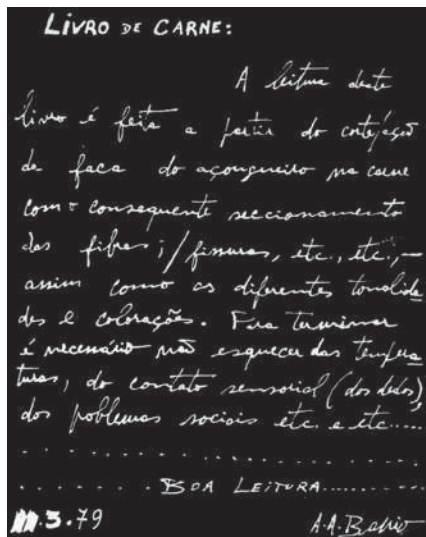 LIVRO DE CARNE:
A leitura deste
livro é feita a partir do corte/ação
da faca do açougueiro na carne
com o consequente seccionamento
das fibras; / fissuras, etc., etc., —
assim como as diferentes tonalida
des e colorações. Para terminar
é necessário não esquecer das tempera
turas, do contato sensorial (dos dedos),
dos problemas sociais etc. e etc.....
. . . . . . . . . . . . . . . . . . . .
. . . . . . . BOA LEITURA............
.3.79 A.A.Barrio